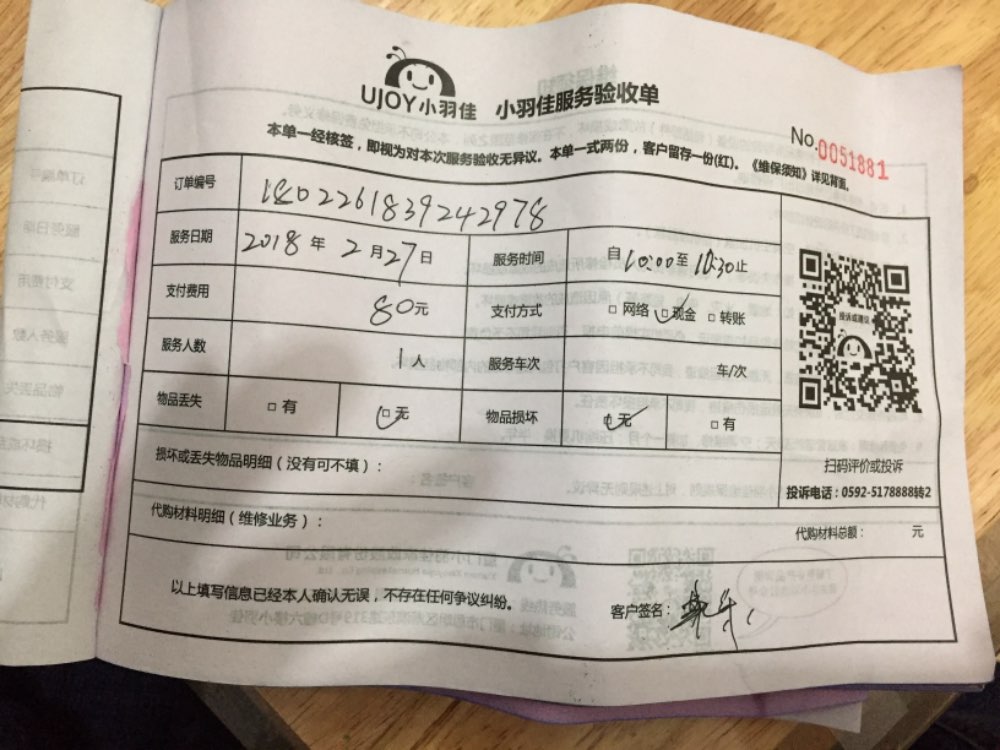 UJOY小羽佳 小羽佳服务验收单
No.0051881
本单一经核签，即视为对本次服务验收无异议。本单一式两份，客户留存一份(红)。《维保须知》详见背面。
订单编号 1802261839242978
服务日期 2018年2月27日 服务时间 自10:00至10:30止
支付费用 80元 支付方式 □网络 □现金 □转账
服务人数 1人 服务车次 车/次
物品丢失 □有 □无 物品损坏 □无 □有
投诉或建议
扫码评价或投诉
投诉电话：0592-5178888转2
损坏或丢失物品明细（没有可不填）：
代购材料明细（维修业务）： 代购材料总额： 元
以上填写信息已经本人确认无误，不存在任何争议纠纷。 客户签名：